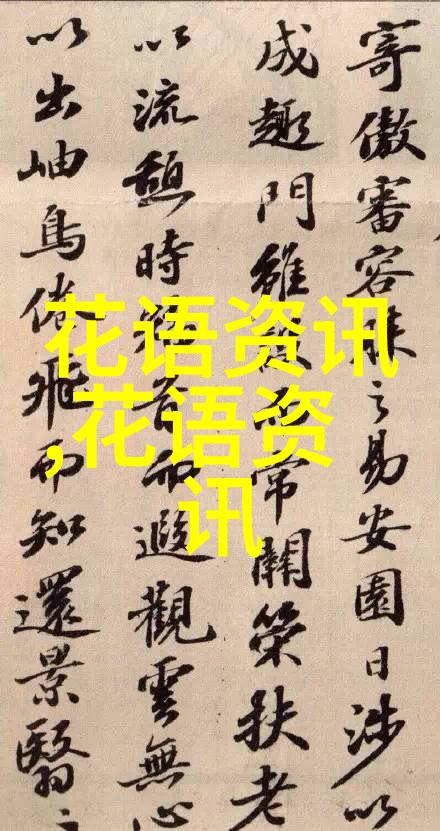 寄傲審容膝之易安園日涉以
成趣門雖設而常關策扶老
以流憩時矯首而遐觀雲無心
以出岫鳥倦飛而知還景翳
花语资讯
,花语资
讯